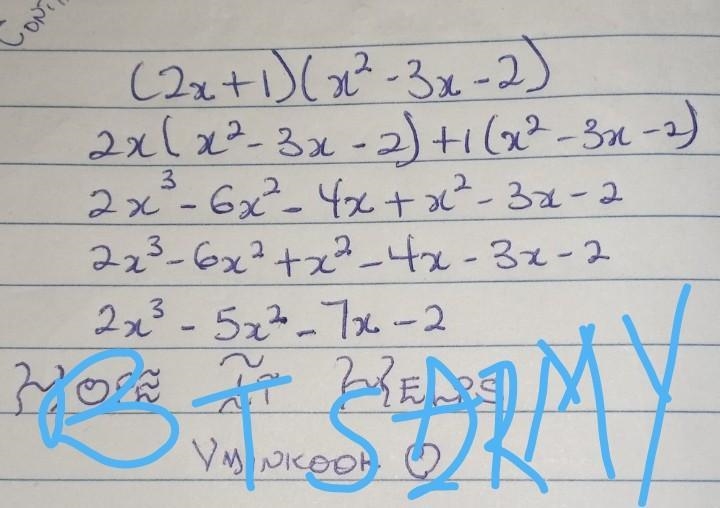 (2x+1)(x²-3x-2)
2x(x²-3x-2)+1(x²-3x-2)
2x³-6x²-4x+x²-3x-2
2x³-6x²+x²-4x-3x-2
2x³-5x²-7x-2
BTSARMY